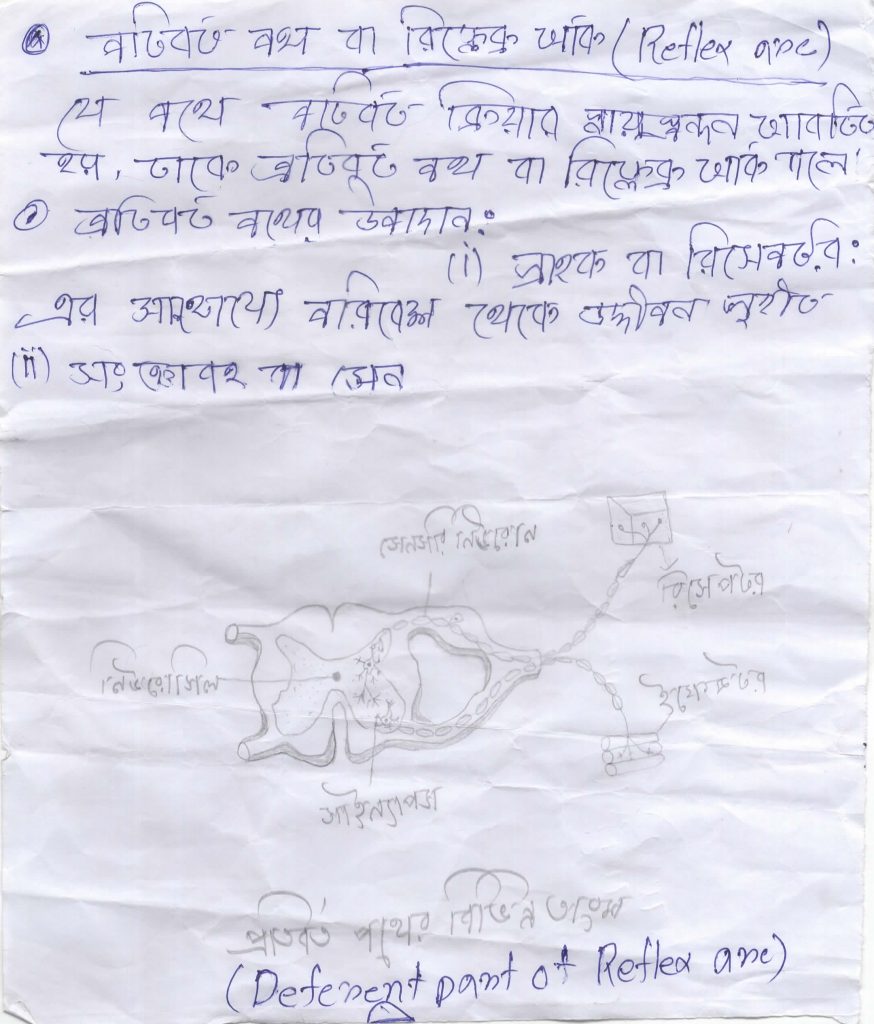 প্রতিবর্ত পথ বা রিফ্লেক্স আর্ক (Reflex arc)
যে পথে প্রতিবর্ত ক্রিয়ার স্নায়ুস্পন্দন আবর্তিত
হয়, তাকে প্রতিবর্ত পথ বা রিফ্লেক্স আর্ক বলে।
প্রতিবর্ত পথের উপাদান:
(i) গ্রাহক বা রিসেপ্টর:
এর সাহায্যে পরিবেশ থেকে উদ্দীপন গৃহীত
(ii) বা সেন
সেনসরি নিউরোন
রিসেপটর
নিউরোসিল
ইফেক্টর
সাইন্যাপস
প্রতিবর্ত পথের বিভিন্ন অংশ
(Deferent part of Reflex arc)